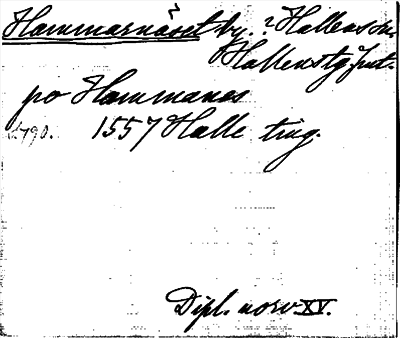 Hammarnäset by. ? Hallens sn.
Hallens tg. Jmt.
po Hammanes
s. 190. 1557 Halle ting.
Dipl. norv XV.